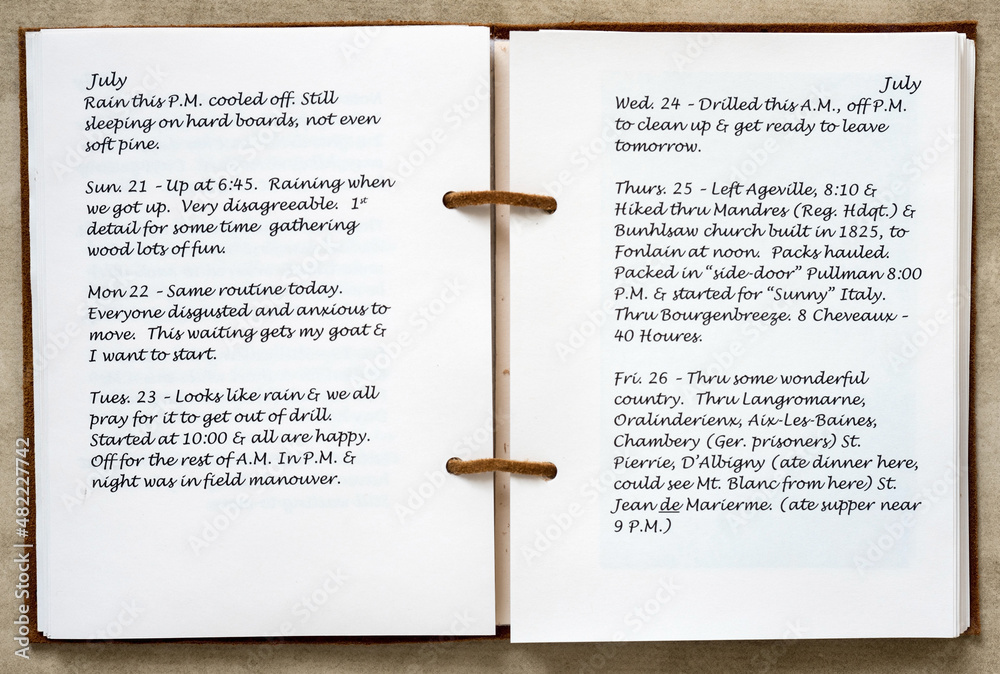 July
Rain this P.M. cooled off. Still
sleeping on hard boards, not even
soft pine.
Sun. 21 - Up at 6:45. Raining when
we got up. Very disagreeable. 1st
detail for some time gathering
wood lots of fun.
Mon 22 - Same routine today.
Everyone disgusted and anxious to
move. This waiting gets my goat &
I want to start.
Tues. 23 - Looks like rain & we all
pray for it to get out of drill.
Started at 10:00 & all are happy.
Off for the rest of A.M. In P.M. &
night was in field manouver.
July
Wed. 24 - Drilled this A.M., off P.M.
to clean up & get ready to leave
tomorrow.
Thurs. 25 - Left Ageville, 8:10 &
Hiked thru Mandres (Reg. Hdqt.) &
Bunhlsaw church built in 1825, to
Fonlain at noon. Packs hauled.
Packed in “side-door” Pullman 8:00
P.M. & started for “Sunny” Italy.
Thru Bourgenbreeze. 8 Cheveaux -
40 Houres.
Fri. 26 - Thru some wonderful
country. Thru Langromarne,
Oralinderienx, Aix-Les-Baines,
Chambery (Ger. prisoners) St.
Pierrie, D'Albigny (ate dinner here,
could see Mt. Blanc from here) St.
Jean de Marierme. (ate supper near
9 P.M.)
Adobe Stock | #482227742